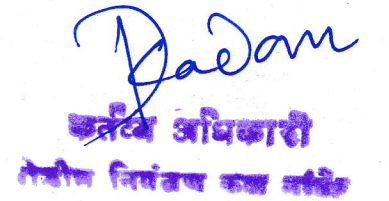 Kadam
कर्तव्य अधिकारी
नियंत्रण कक्ष